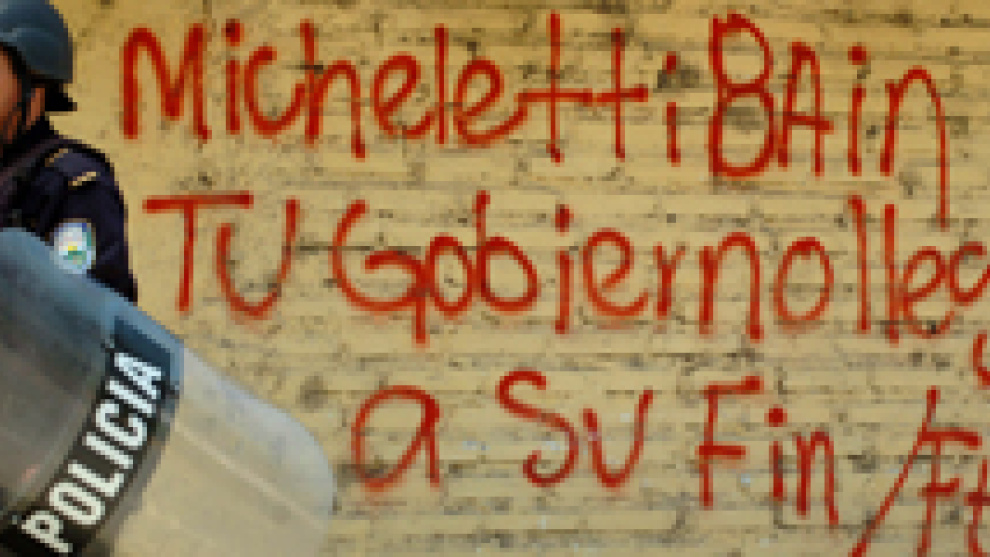 Micheletti BAin
TU Gobierno lleg
a Su Fin /F
POLICIA